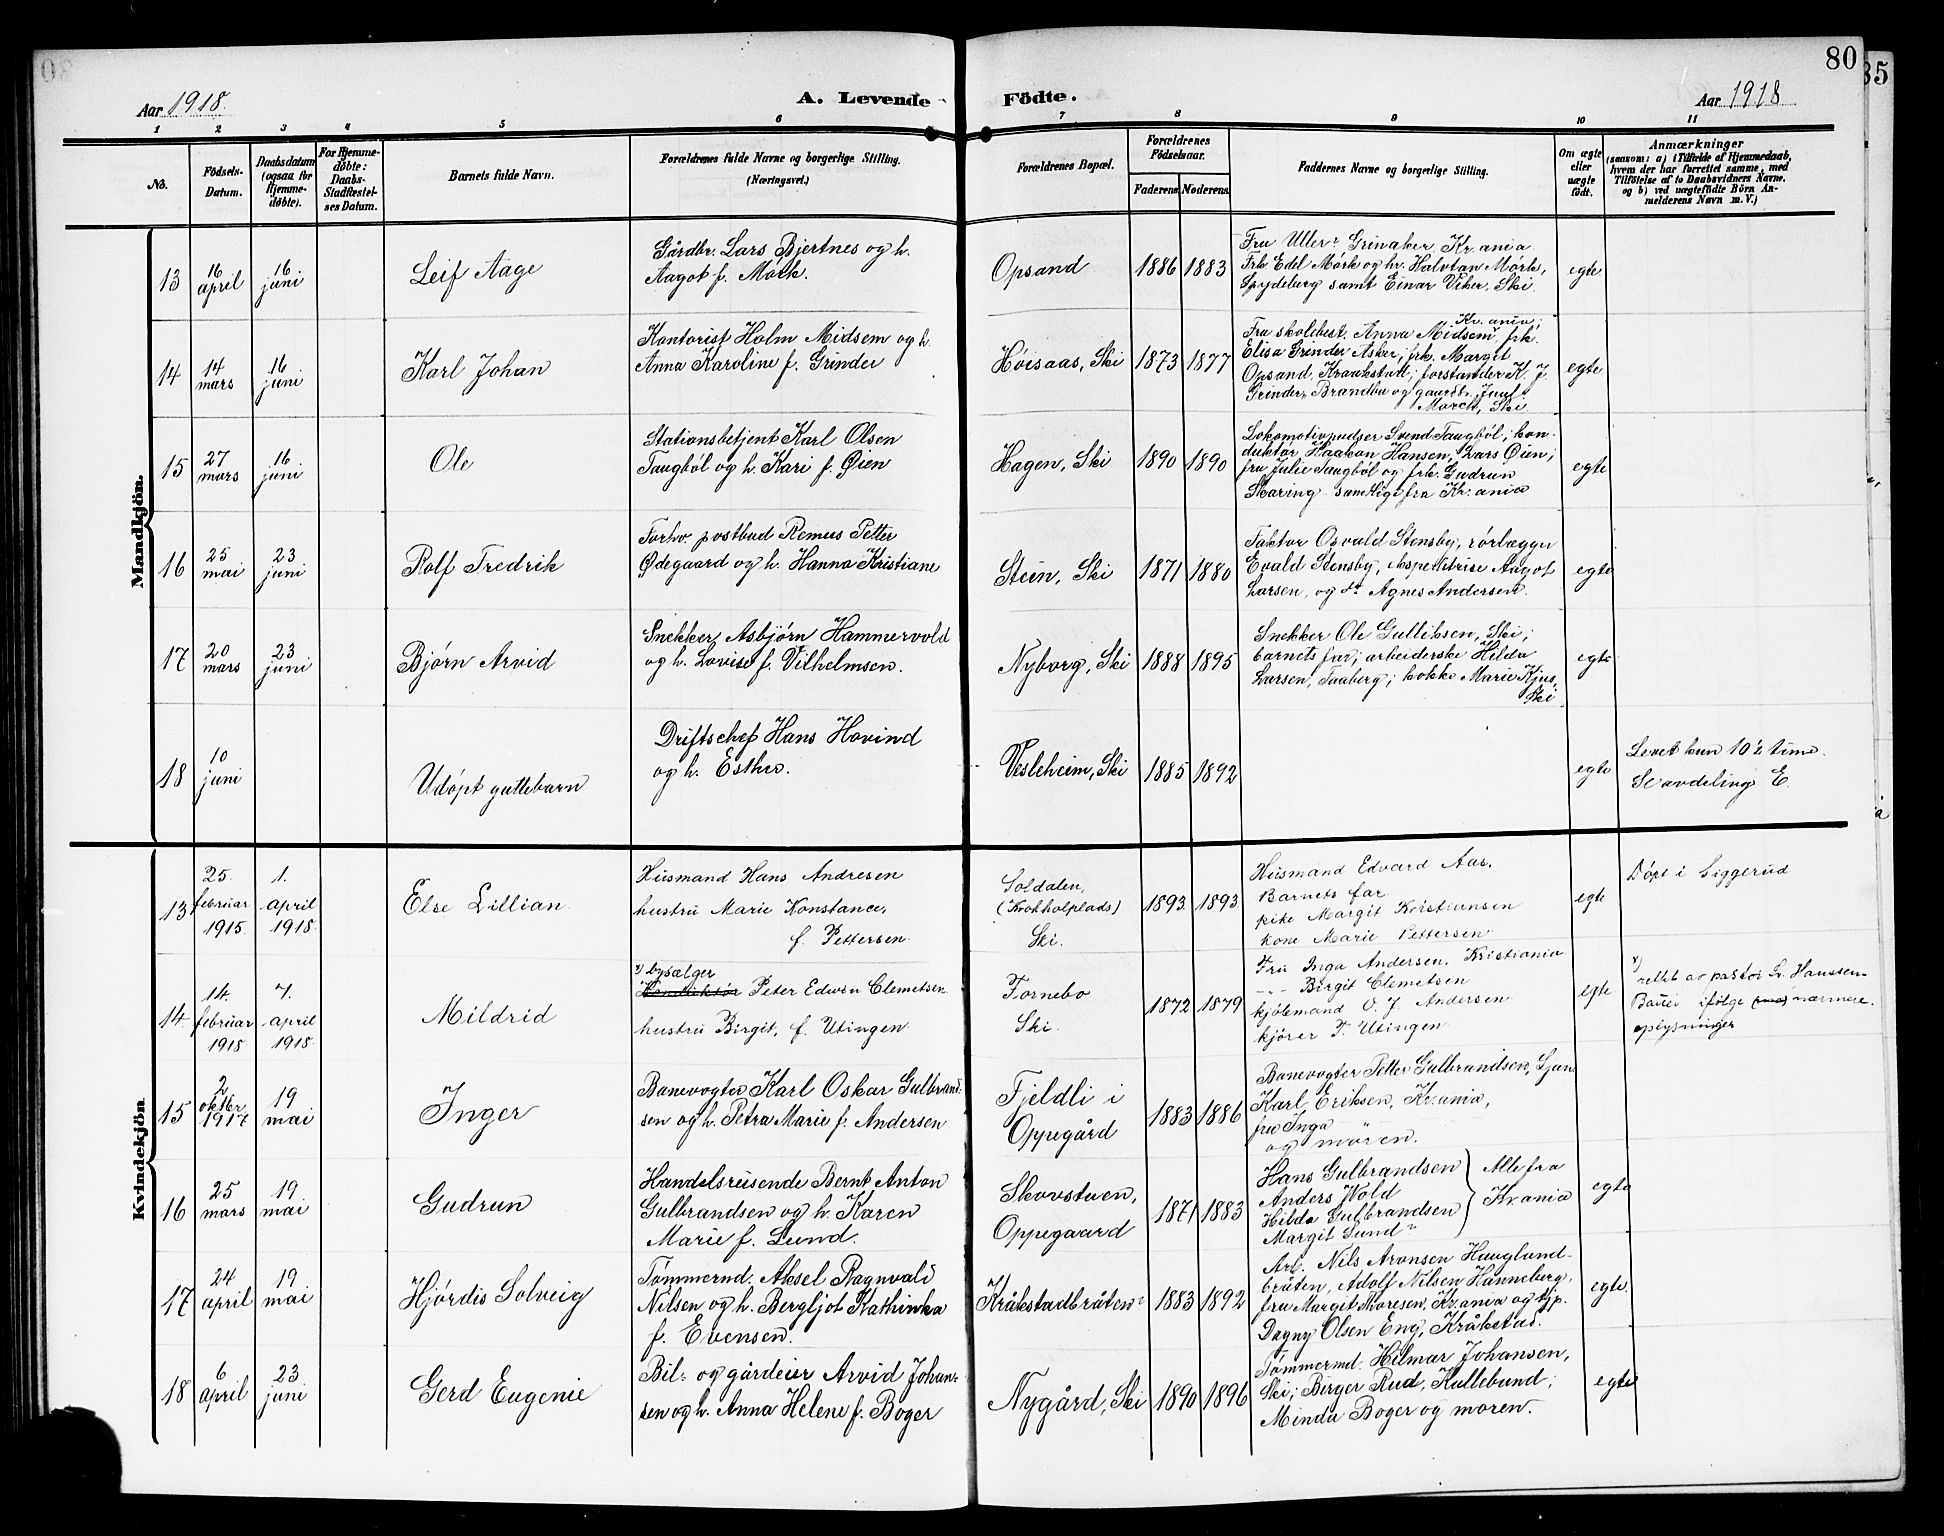 80
85
Aar 1918.
A. Levende
Födte.
Aar 1918
1 2 3 4 5 6 7 8 9 10 11
No.
Födsels-
Datum.
Daabsdatum
(ogsaa for
Hjemme-
døbte).
For Hjemme-
døbte:
Daabs-
Stadfæstel-
ses Datum.
Barnets fulde Navn.
Forældrenes fulde Navne og borgerlige Stilling.
(Næringsvei.)
Forældrenes Bopæl.
Forældrenes
Födselsaar.
Faderens. Moderens.
Faddernes Navne og borgerlige Stilling.
Om ægte
eller
uægte
födt.
Anmærkninger
(saasom: a) i Tilfælde af Hjemmedaab,
hvem der har forrettet samme, med
Tilföielse af to Daabsvidners Navne.
og b) ved uægtefödte Börn An-
melderens Navn m. V.)
Mandkjön.
13
16
april
16
juni
Leif Aage
Gårdbr. Lars Bjertnes og h.
Aagot f. Mörk.
Opsand
1886 1883
Fru Grinaker, Kr.ania
Frk. Edel Mörk og hr. Halvtan Mörk,
Spydeberg samt Einar Viker, Ski.
egte
14
14
mars
16
juni
Karl Johan
Kontorist Holm Midsem og h.
Anna Karoline f. Grinder
Höisaas, Ski
1873 1877
Kr.ania;
Fru skolebest. Anna Midsem, frk.
Elisa Grinder Asker; frk. Margit
Opsand, Kraakstad; forstander K. J.
Grinder, Brandbu og gaardbr. Juul
Morch, Ski
egte
15
27
mars
16
juni
Ole
Stationsbetjent Karl Olsen
Taugböl og h. Kari f. Øien
Hagen, Ski
1890 1890
Lokomotivpudser Svend Taugböl; kon-
duktör Haakon Hansen, Lars Öien;
fru Julie Taugböl og frk. Gudrun
Skaring - samtlige fra Kr.ania
egte
16
25
mai
23
juni
Rolf Fredrik
Forhv. postbud Remus Petter
Ødegaard og h. Hanna Kristiane
Stein, Ski
1871 1880
Faktor Osvald Stensby, rörlægger
Evald Stensby, ekspeditrise Aagot
Larsen, og do Agnes Andersen.
egte
17
20
mars
23
juni
Björn Arvid
Snekker Asbjörn Hammervold
og h. Lovise f. Vilhelmsen.
Nyborg, Ski
1888 1895
Snekker Ole Gulliksen, Ski;
barnets far; arbeiderske Hilda
Larsen, Faaberg; kokke Marie Kjus,
Ski
egte
18
10
juni
Udöpt guttebarn
Driftschef Hans Hovind
og h. Esther.
Vesleheim, Ski
1885 1892
egte
Levet kun 10½ time.
Se avdeling E.
Kvindekjön
13
25.
februar
1915
1.
april
1918.
Else Lillian.
Husmand Hans Andresen
hustru Marie Konstance,
f. Pettersen.
Soldalen,
(Krokholplads)
Ski.
1893. 1893.
Husmand Edvard Aas.
Barnets far
pike Margit Kristiansen
kone Marie Pettersen.
egte
Döpt i Siggerud
14
14.
februar
1918
7.
april
1918.
Mildrid
x) bysælger
Konduktør Peter Edwin Clemetsen
hustru Birgit, f. Utingen.
Fornebo
Ski.
1872 1879
Fru Inga Andersen. Kristiania
-"- Birgit Clemetsen
kjölemand O. J. Andersen
kjörer T. Utingen
egte
x)
rettet av pastor Hanssen-
Bauer ifölge nærmere
oplysninger
15
2
oktbr.
1917
19
mai
Inger
Banevogter Karl Oskar Gulbrand-
sen og h. Petra Marie f. Andersen
Fjeldli i
Oppegård
1883 1886
Banevogter Petter Gulbrandsen, Ljan
Karl Eriksen, Kr.ania,
fru Inga
og moren.
16
25
mars
19
mai
Gudrun
Handelsreisende Bernt Anton
Gulbrandsen og h. Karen
Marie f. Lund.
Skovstuen,
Oppegaard
1871 1883
Hans Gulbrandsen
Anders Wold
Hilda Gulbrandsen
Margit Lund
Alle fra
Kr.ania
egte
17
24
april
19
mai
Hjördis Solveig
Tömmermd. Aksel Ragnvald
Nilsen og h. Bergljot Kathinka
f. Evensen.
Kråkstadbråten
1883 1892
Arb. Nils Aronsen Hauglund-
bråten, Adolf Nilsen Hanneberg,
fru Margit Thoresen, Kr.ania og tjp.
Dagny Olsen Eng, Kråkstad.
egte.
18
6
april
23
juni
Gerd Eugenie
Bil- og gårdeier Arvid Johan-
sen og h. Anna Helene f. Boger
Nygård, Ski
1890 1896
Tömmermd. Hilmar Johansen,
Ski; Birger Rud, Kullebund;
Minda Boger og moren.
egte